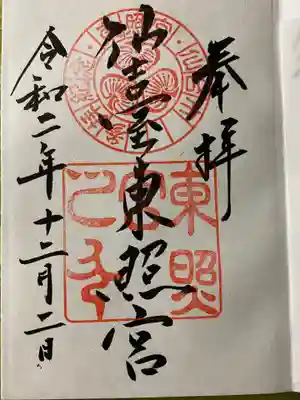 奉拝
仙臺東照宮
令和二年十二月二日
東照
宮
之印